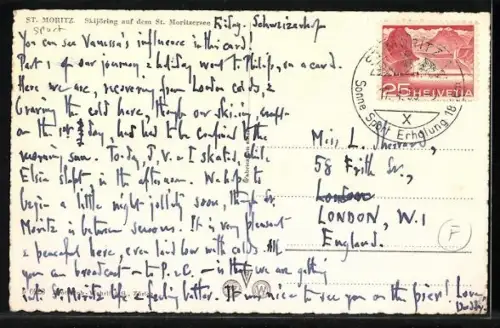 ST. MORITZ Skijöring auf dem St. Moritzersee
Friday. Schweizerhof
sport
You can see Vanessa's influence in this card!
Part 1 of our journey & holiday went to Philip, on a card.
Here we are, recovering from London colds, &
braving the cold here, though our skiing,
on the 1st day, had to be confined to the
morning sun. To-day, J, V. & I skated, while
Elsie slept in the afternoon. We hope to
begin a little night-jollity soon, though St.
Moritz is between seasons. It is very pleasant
& peaceful here, even laid low with colds. All
you can broadcast — to P. & C. — is that we are getting
into St. Moritz life & feeling better. It was nice to see you on the pier! Love
HELVETIA
25
ST. MORITZ
Sonne Sport Erholung
18
X
Miss L.
58 Frith St.,
London
LONDON, W.1
England.
F
W